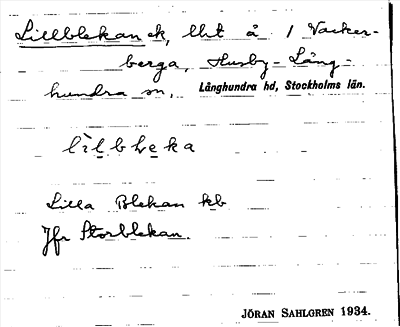 Lillblekan ek, lht å / Vacker-
berga, Husby-Lång-
hundra sn, Långhundra hd, Stockholms län.
lìlbleka
Lilla Blekan kb
Jfr Storblekan.
JÖRAN SAHLGREN 1934.